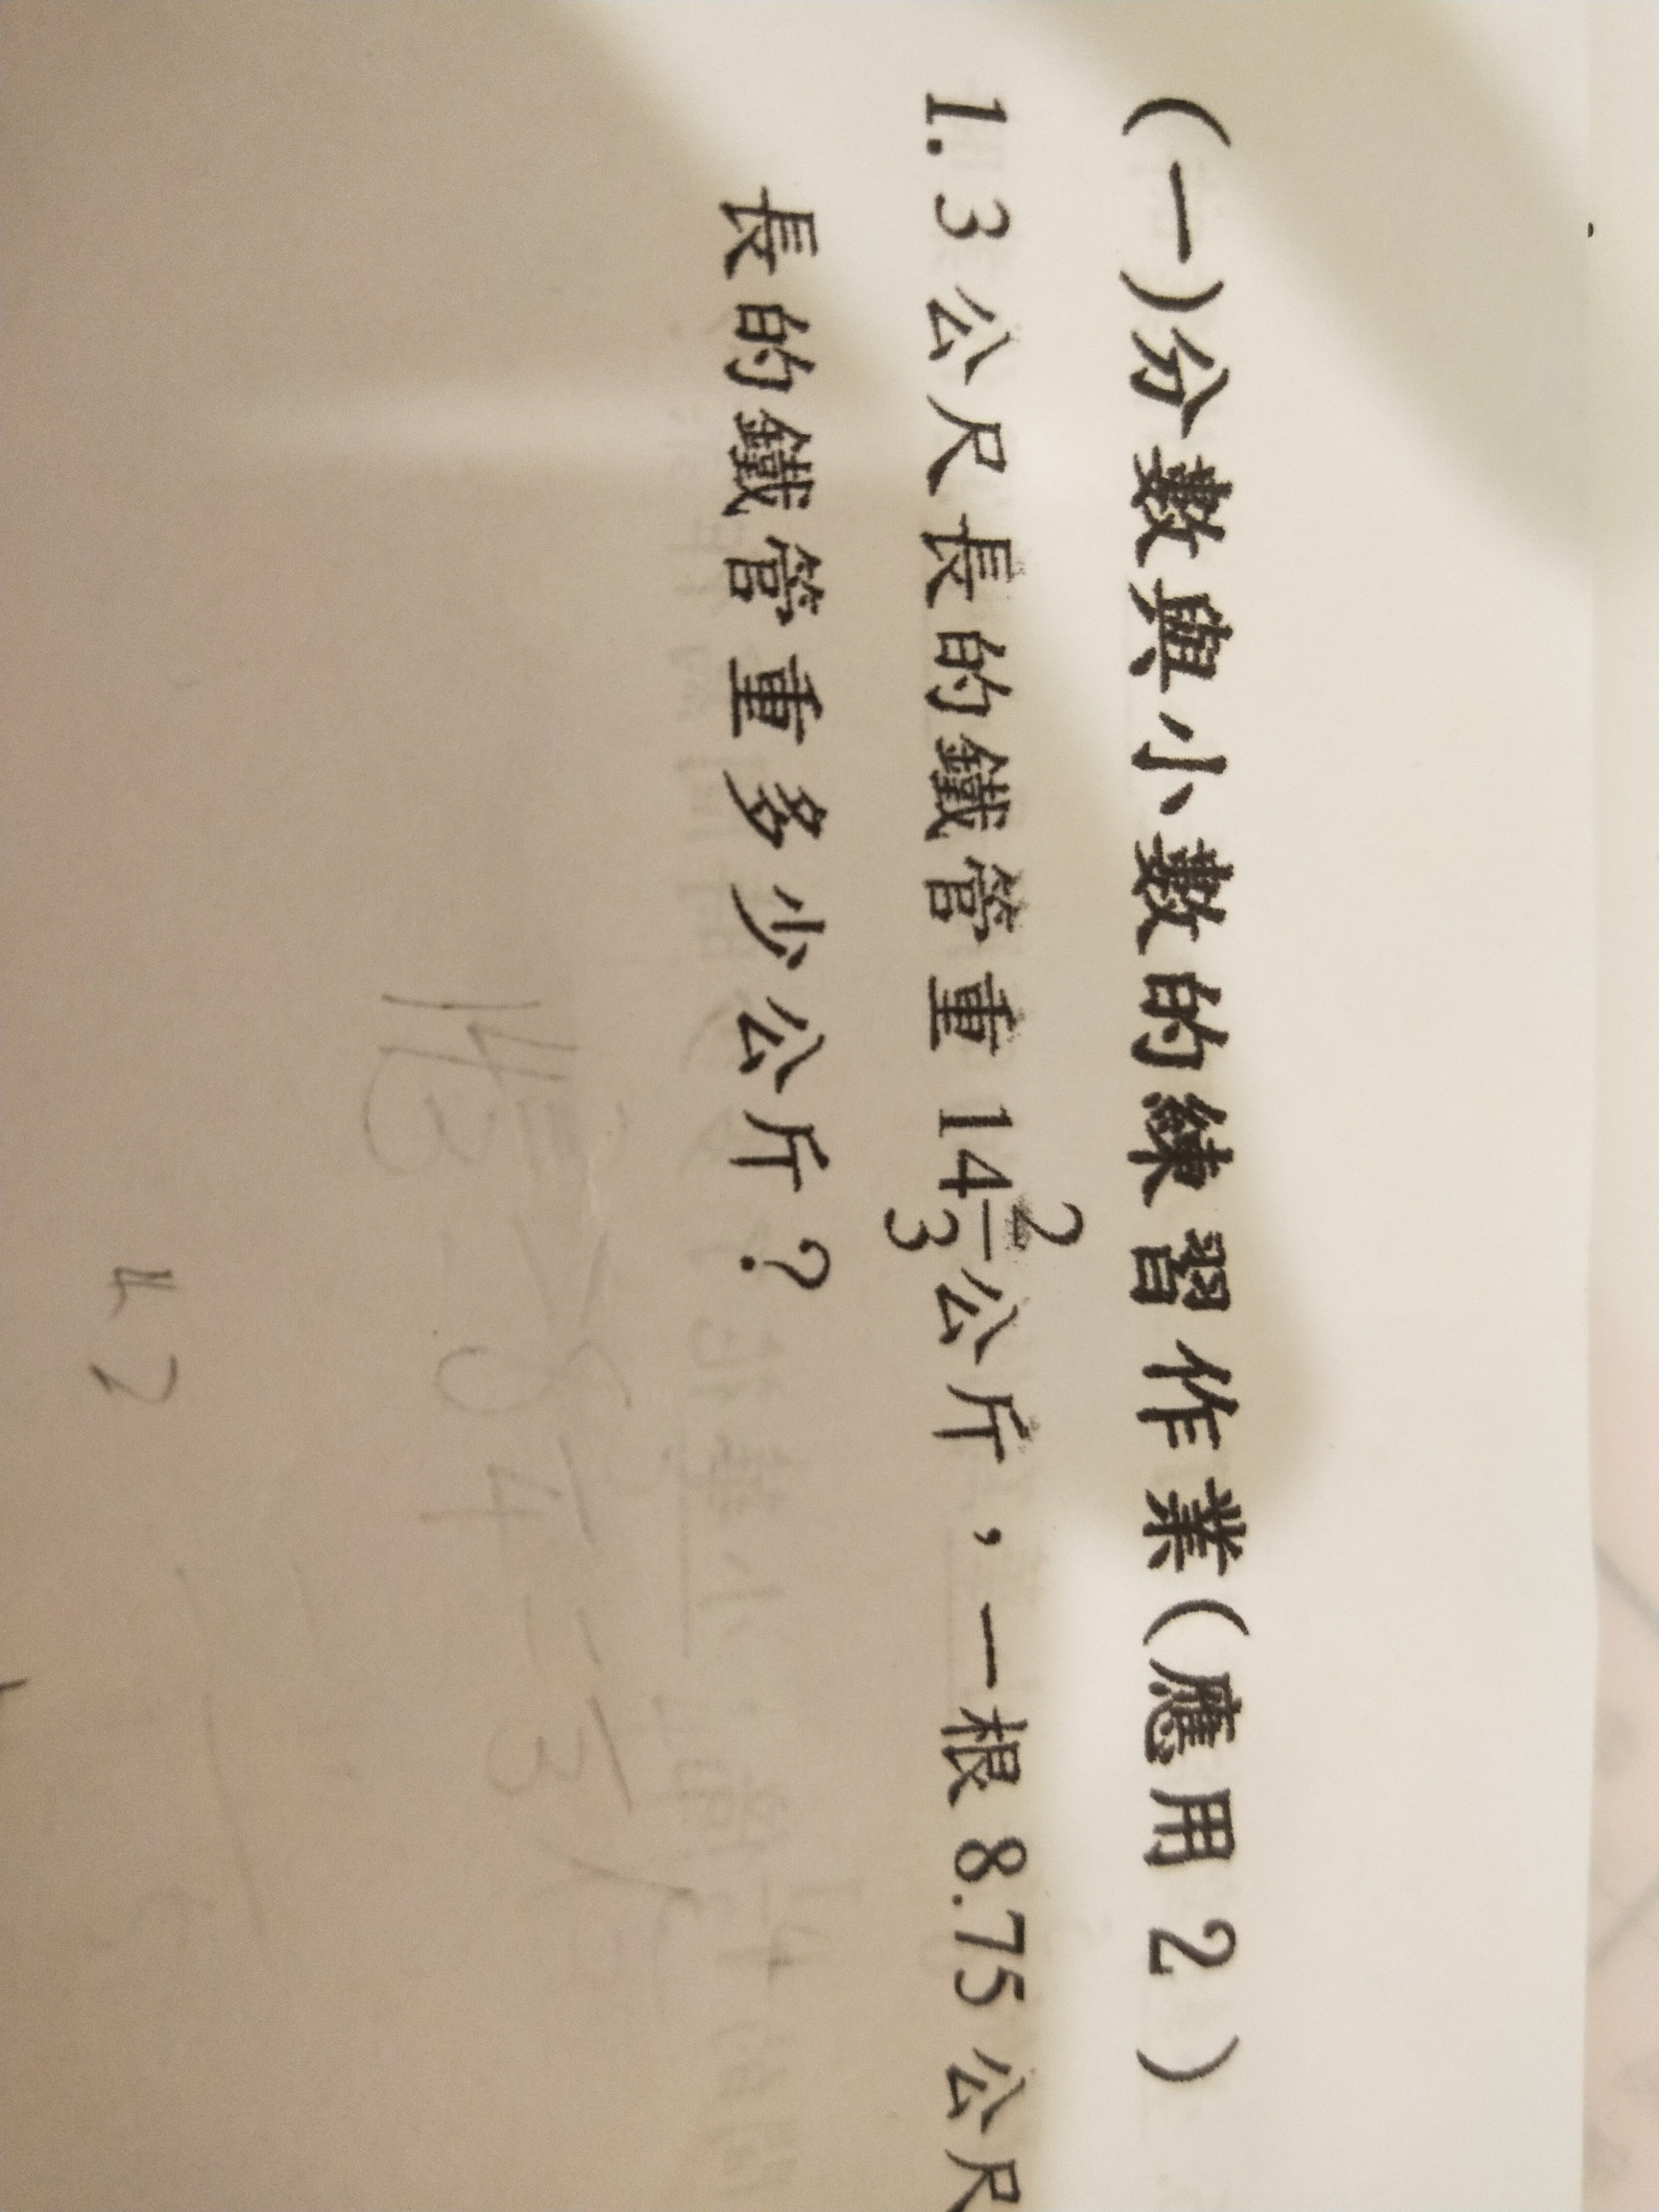 (一)分數與小數的練習作業(應用2)
1. 3公尺長的鐵管重14 2/3公斤，一根8.75公尺
長的鐵管重多少公斤？